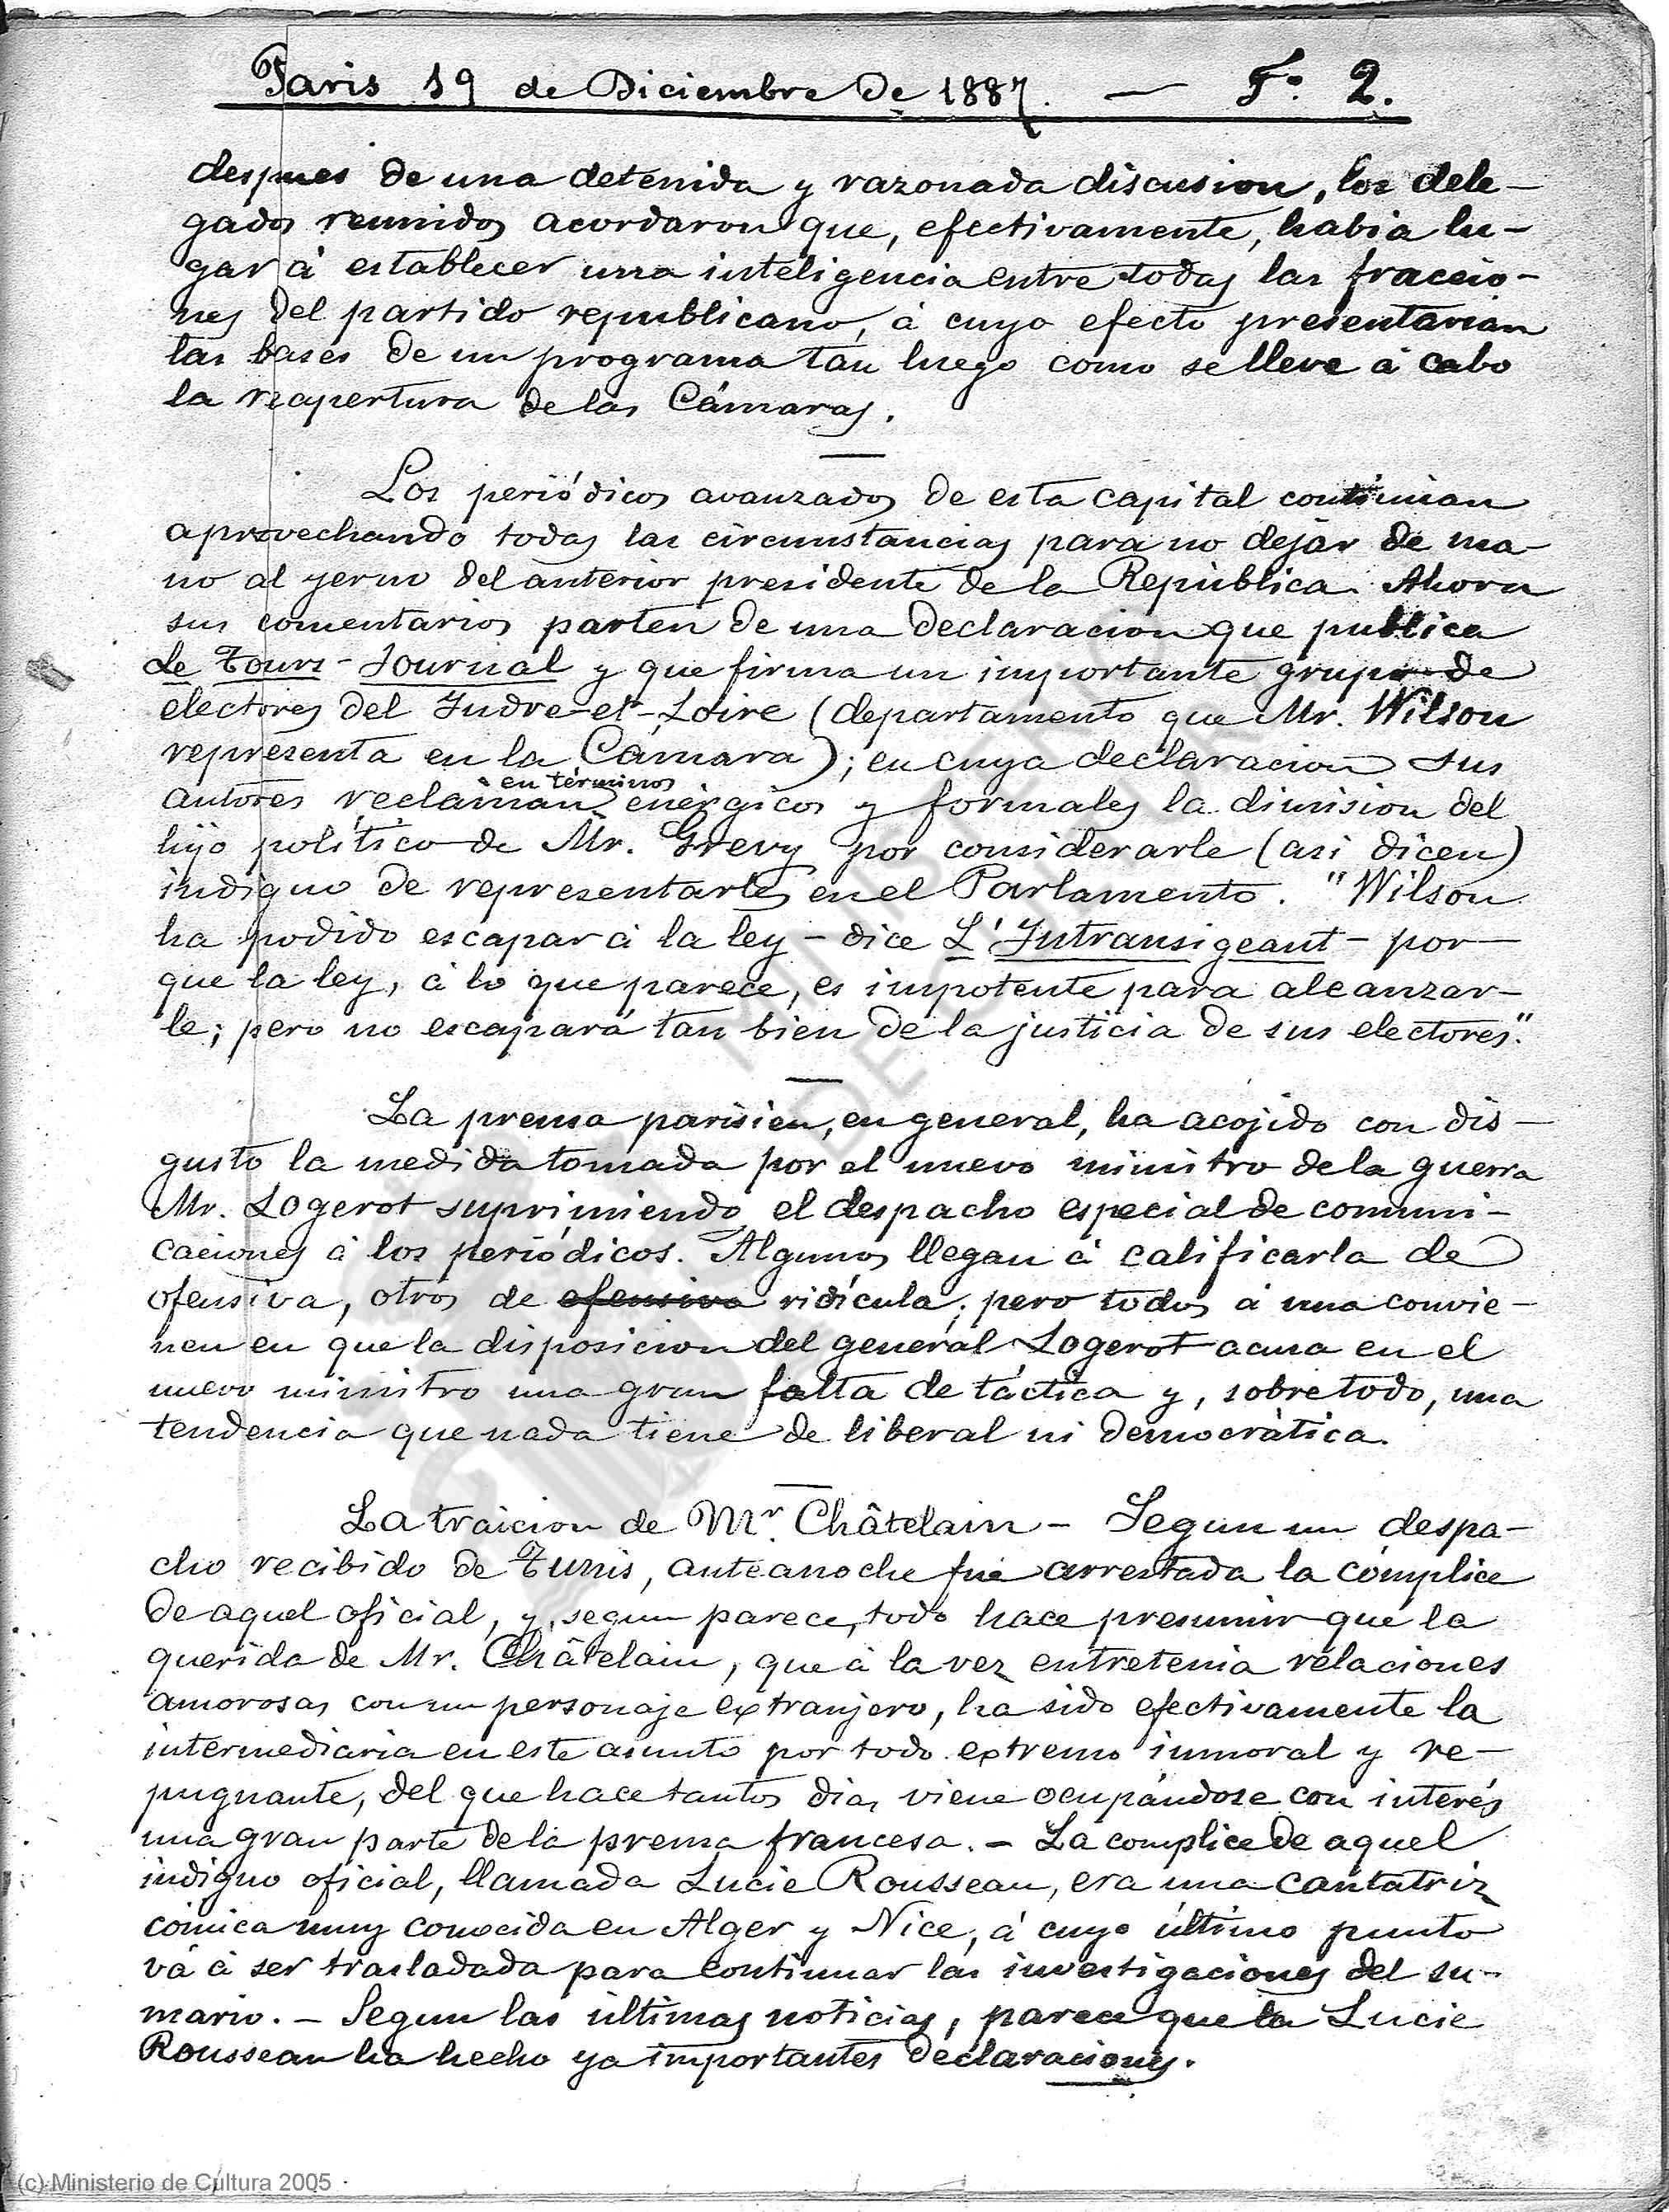 Paris 19 de Diciembre de 1887. — Fº 2.
despues de una detenida y razonada discusion, los dele-
gados reunidos acordaron que, efectivamente, habia lu-
gar á establecer una inteligencia entre todas las fraccio-
nes del partido republicano, á cuyo efecto presentarian
las bases de un programa tan luego como se lleve á cabo
la reapertura de las Cámaras.
Los periódicos avanzados de esta capital continúan
aprovechando todas las circunstancias para no dejar de ma-
no al yerno del anterior presidente de la República. Ahora
sus comentarios parten de una declaracion que publica
Le Tours-Journal y que firma un importante grupo de
electores del Indre-et-Loire (departamento que Mr. Wilson
representa en la Cámara); en cuya declaracion sus
autores reclaman en términos enérgicos y formales la dimision del
hijo político de Mr. Grevy por considerarle (asi dicen)
indigno de representarles en el Parlamento. "Wilson
ha podido escapar á la ley - dice L'Intransigeant - por-
que la ley, á lo que parece, es impotente para alcanzar-
le; pero no escapará tan bien de la justicia de sus electores."
La prensa parisien, en general, ha acojido con dis-
gusto la medida tomada por el nuevo ministro de la guerra
Mr. Logerot suprimiendo el despacho especial de comuni-
caciones á los periódicos. Algunos llegan á calificarla de
ofensiva, otros de ofensiva ridícula; pero todos á una convie-
nen en que la disposicion del general Logerot acusa en el
nuevo ministro una gran falta de táctica y, sobre todo, una
tendencia que nada tiene de liberal ni democrática.
La traicion de Mr. Châtelain - Segun un despa-
cho recibido de Tunis, anteanoche fué arrestada la cómplice
de aquel oficial, y, segun parece, todo hace presumir que la
querida de Mr. Châtelain, que á la vez entretenia relaciones
amorosas con un personaje extranjero, ha sido efectivamente la
intermediaria en este asunto por todo extremo inmoral y re-
pugnante, del que hace tantos dias viene ocupándose con interés
una gran parte de la prensa francesa. - La complice de aquel
indigno oficial, llamada Lucie Rousseau, era una cantatriz
cómica muy conocida en Alger y Nice, á cuyo último punto
vá á ser trasladada para continuar las investigaciones del su-
mario. - Segun las últimas noticias, parece que la Lucie
Rousseau ha hecho ya importantes declaraciones.
(c) Ministerio de Cultura 2005